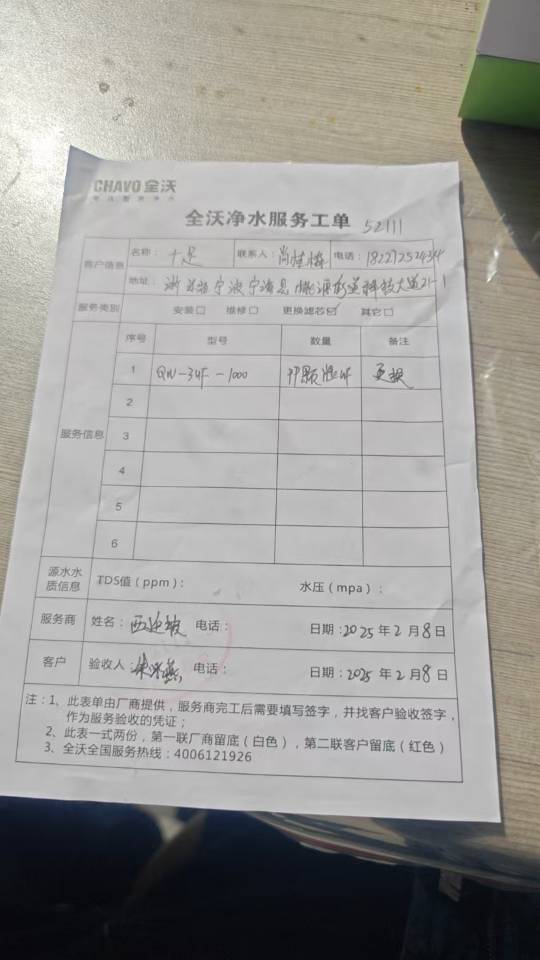 CHAVO 全沃
全沃净水服务工单 52111
客户信息 名称：十足 联系人：肖桂梅 电话：18227252434
地址：浙江省宁波宁海县桃源街道科技大道21-1
服务类别 安装□ 维修□ 更换滤芯☑ 其它□
服务信息 序号 型号 数量 备注
1 QW-3UF-1000 PP颗粒UF 更换
2
3
4
5
6
源水水质信息 TDS值（ppm）： 水压（mpa）：
服务商 姓名： 电话： 日期：2025年2月8日
客户 验收人： 电话： 日期：2025年2月8日
注：1、此表单由厂商提供，服务商完工后需要填写签字，并找客户验收签字，
作为服务验收的凭证；
2、此表一式两份，第一联厂商留底（白色），第二联客户留底（红色）
3、全沃全国服务热线：4006121926